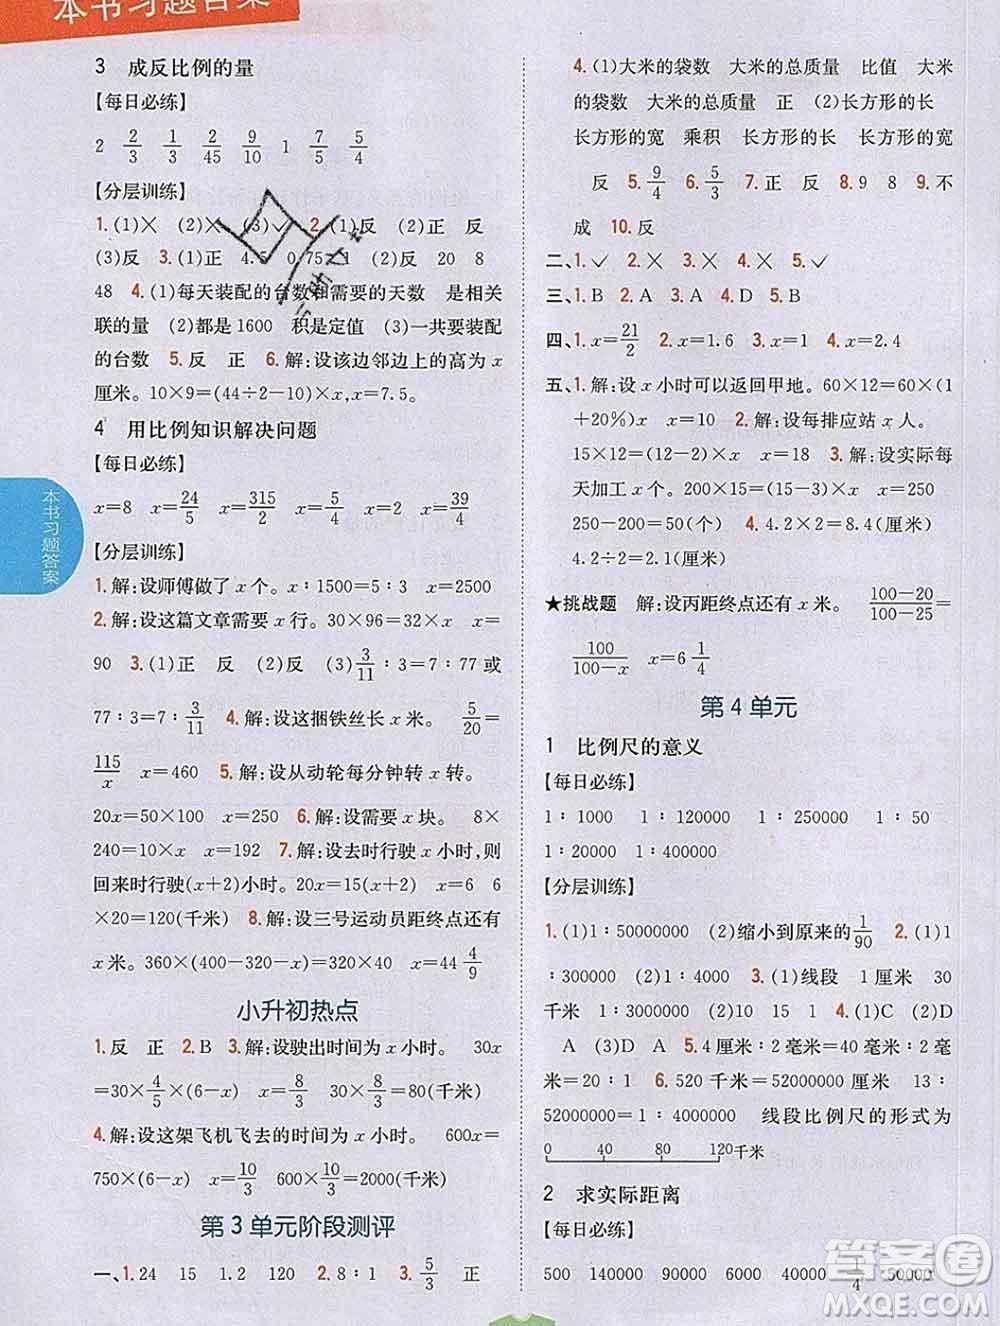 本书习题答案
3 成反比例的量
【每日必练】
2 2/3 1/3 2/45 9/10 1 7/5 5/4
【分层训练】
1.(1)× (2)× (3)✓ 2.(1)反 (2)正 反
(3)反 3.(1)正 4.5 0.75 1 (2)反 20 8
48 4.(1)每天装配的台数和需要的天数 是相关
联的量 (2)都是 1600 积是定值 (3)一共要装配
的台数 5.反 正 6.解:设该边邻边上的高为 x
厘米。10×9=(44÷2-10)×x,x=7.5。
4 用比例知识解决问题
【每日必练】
x=8 x=24/5 x=315/2 x=5/4 x=2 x=39/4
【分层训练】
1.解:设师傅做了 x 个。x∶1500=5∶3 x=2500
2.解:设这篇文章需要 x 行。30×96=32×x x=
90 3.(1)正 反 (2)反 (3)3/11∶7=3∶77或
77∶3=7∶3/11 4.解:设这捆铁丝长 x 米。 5/20=
115/x x=460 5.解:设从动轮每分钟转 x 转。
20x=50×100 x=250 6.解:设需要 x 块。 8×
240=10×x x=192 7.解:设去时行驶 x 小时,则
回来时行驶(x+2)小时。20x=15(x+2) x=6 6
×20=120(千米) 8.解:设三号运动员距终点还有
x 米。360×(400-320)=320×40 x=44 4/9
小升初热点
1.反 正 2.B 3.解:设驶出时间为 x 小时。 30x
=30×4/5×(6-x) x=8/3 30×8/3=80(千米)
4.解:设这架飞机飞去的时间为 x 小时。 600x=
750×(6-x) x=10/3 600×10/3=2000(千米)
第 3 单元阶段测评
一、1.24 15 1.2 30 2.8∶1 3.5/3 正
4.(1)大米的袋数 大米的总质量 比值 大米
的袋数 大米的总质量 正 (2)长方形的长
长方形的宽 乘积 长方形的长 长方形的宽
反 5.9/4 6.5/3 7.正 8.9 8 9.不
成 10.反
二、1.✓ 2.× 3.× 4.× 5.✓
三、1.B 2.A 3.A 4.D 5.B
四、1.x=21/2 2.x=1.6 3.x=1 4.x=2.4
五、1.解:设 x 小时可以返回甲地。60×12=60×(1
+20%)x x=10 2.解:设每排应站 x 人。
15×12=(12-2)×x x=18 3.解:设实际每
天加工 x 个。200×15=(15-3)×x x=250
250-200=50(个) 4.4.2×2=8.4(厘米)
4.2÷2=2.1(厘米)
★挑战题 解:设丙距终点还有 x 米。 100-20/100-25=
100/100-x x=6 1/4
第 4 单元
1 比例尺的意义
【每日必练】
1∶1000 1∶120000 1∶250000 1∶50
1∶20000 1∶400000
【分层训练】
1.(1)1∶50000000 (2)缩小到原来的1/90 2.(1)1
∶300000 (2)1∶4000 3.(1)线段 1厘米 30
千米 (2)1∶2000000 10 15 1 4.(1)C (2)D
A (3)D A 5.4 厘米∶2 毫米=40 毫米∶2毫米
=20∶1 6.520 千米=52000000 厘米 13∶
52000000=1∶4000000 线段比例尺的形式为
0 40 80 120千米
2 求实际距离
【每日必练】
500 140000 90000 6000 1/4 50000
本书习题答案
答案圈
MXQE.COM